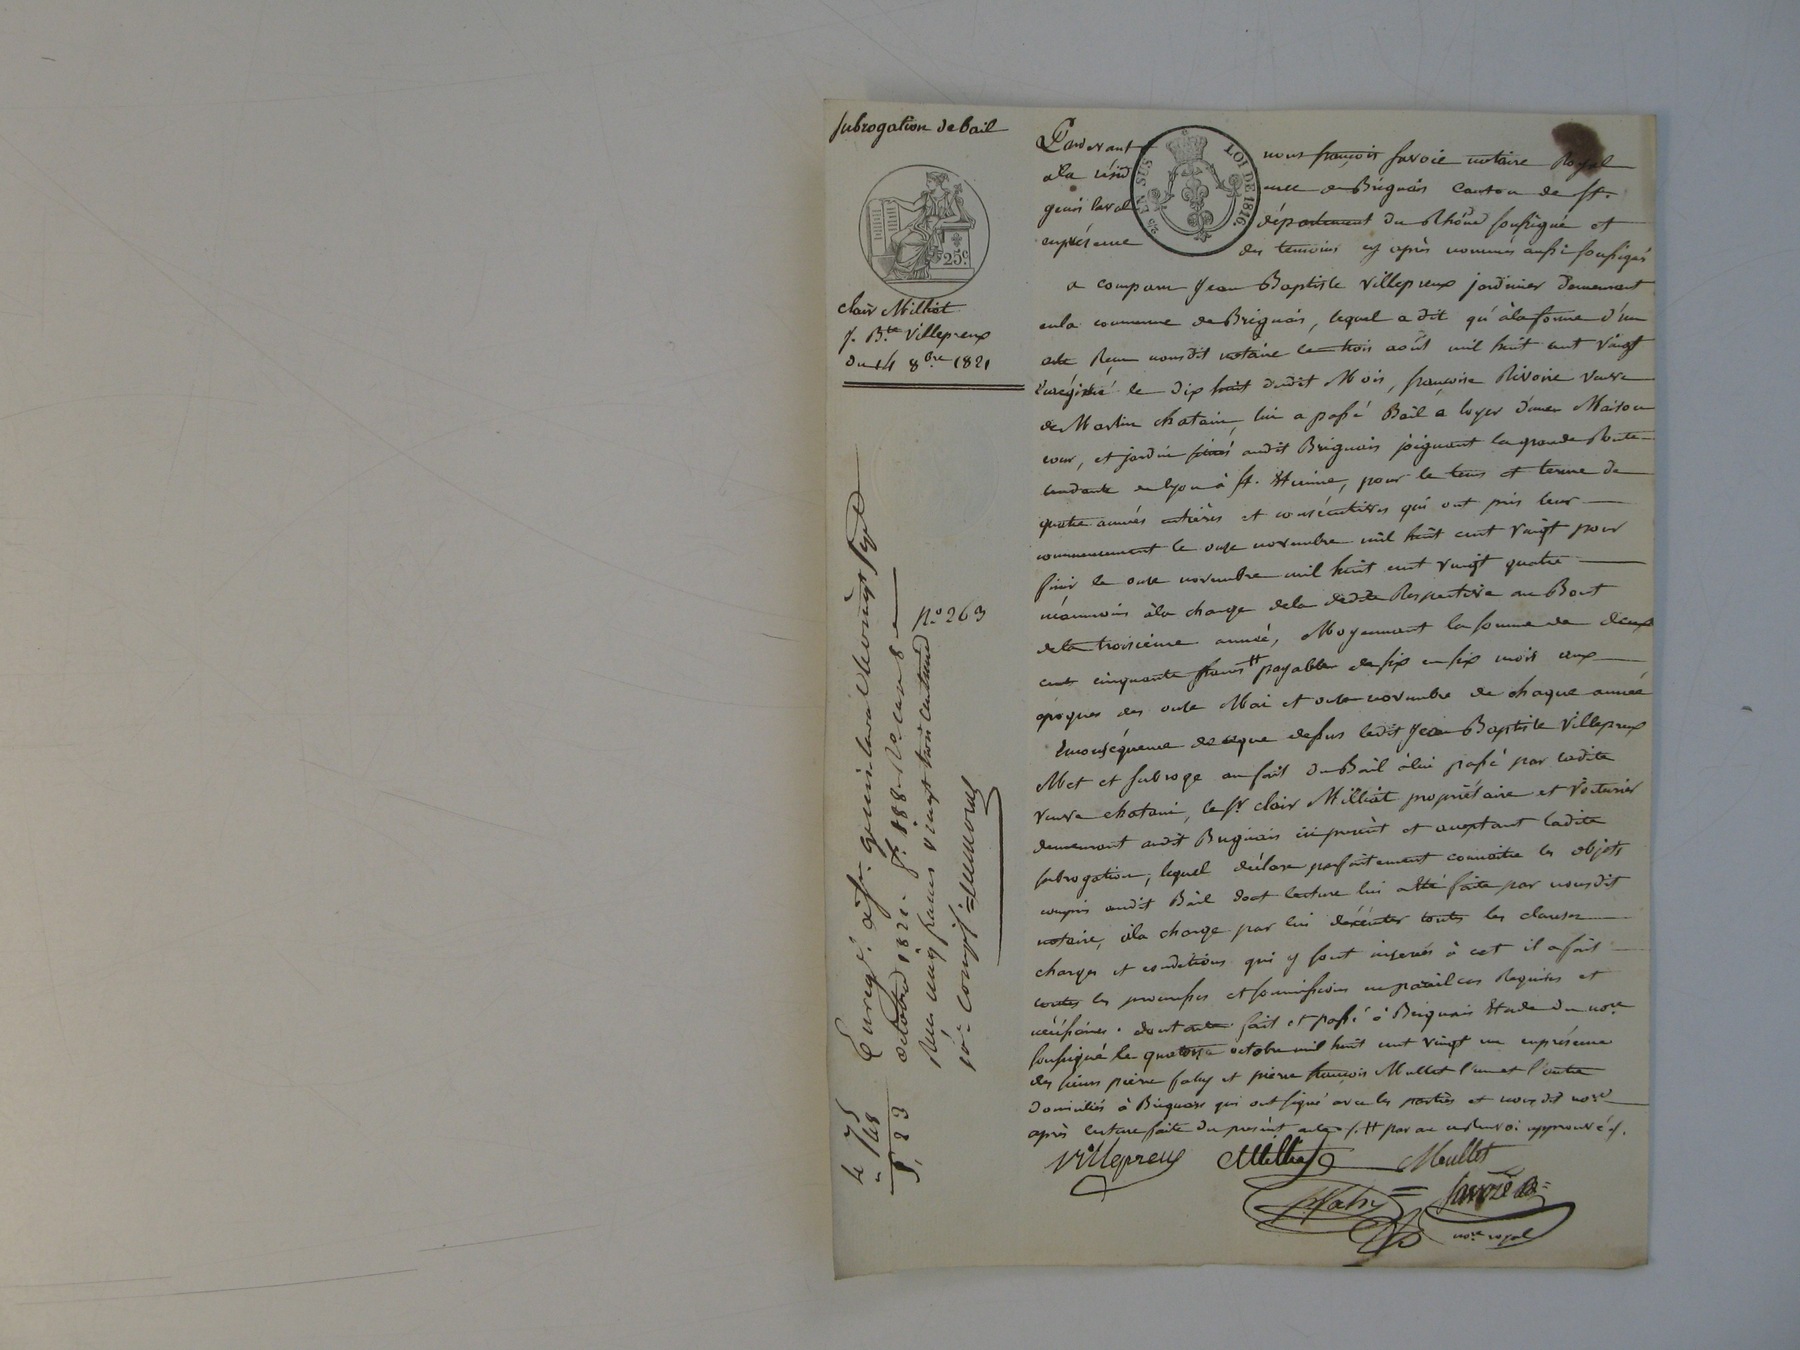 Subrogation de bail
25c.
Clair Milliat
J. Bte Villepreux
du 14 8bre 1821
2/5 EN SUS
LOI DE 1816
Pardevant nous françois Savoie notaire Royal
à la résidence de Brignais Canton de St.
genis laval département du Rhône soussigné et
en présence des temoins cy après nommés aussi soussignés
a comparu Jean Baptiste Villepreux jardinier demeurant
en la commune de Brignais, lequel a dit qu'à la forme d'un
acte Reçu nous dit notaire le trois août mil huit cent vingt
Enrégistré le dix huit dudit Mois, françoise Rivoire veuve
de Martin chatain, lui a passé Bail à loyer d'une Maison
cour, et jardin situés audit Brignais joignant la grande Route
tendante de lyon à St. Etienne, pour le tems et terme de
quatre années entières et consécutives qui ont pris leur
commencement le onze novembre mil huit cent vingt pour
finir le onze novembre mil huit cent vingt quatre
néanmoins à la charge de la dédite Respective au Bout
de la troisième année, Moyennant la somme de deux
cent cinquante francs payable de six en six mois aux
époques des onze Mai et onze novembre de chaque année
Enconséquence de ce que dessus ledit Jean Baptiste Villepreux
Met et subroge au fait du Bail à lui passé par ladite
veuve chatain, le Sr. clair Milliat propriétaire et voiturier
demeurant audit Brignais ici présent et acceptant ladite
subrogation, lequel déclare parfaitement connaitre les objets
compris audit Bail dont lecture lui a été faite par nous dit
notaire, à la charge par lui dexécuter toutes les clauses
charges et conditions qui y sont inserées à cet il a fait
toutes les promesses et soumissions en pareil cas Requises et
nécéssaires. dont acte fait et passé à Brignais Etude du nore
soussigné le quatorze octobre mil huit cent vingt un en présence
des sieurs pierre faby et pierre françois Mullet l'un et l'autre
domiciliés à Brignais qui ont signé avec les parties et nous dit nore
après lecture faite du présent acte ff. # par an renvoi approuvé ff.
Villepreux Milliat Meullet
P. faby Savoie
nore royal
Enregé. à St. genis laval le vingt sept
octobre 1821. f. 188 Ro. cases 8
Reçu cinq francs vingt trois centimes
xe. compris.
No. 263
4.75
" 48
5,23